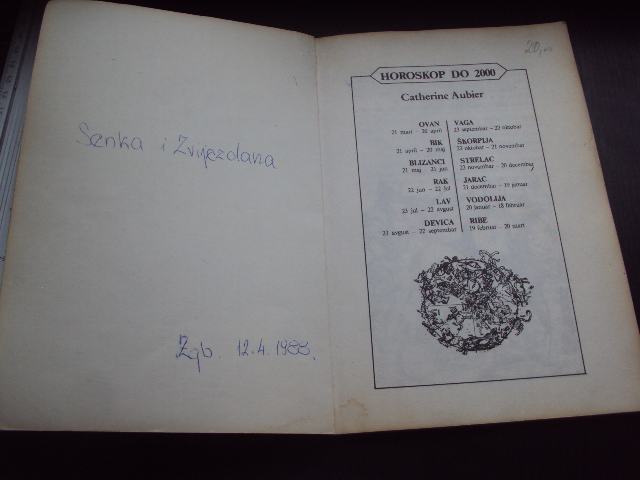 Senka i Zvijezdana
Zgb. 12.4.1988.
20,00
HOROSKOP DO 2000
Catherine Aubier
OVAN
21 mart – 20 april
BIK
21 april – 20 maj
BLIZANCI
21 maj – 21 jun
RAK
22 jun – 22 jul
LAV
23 jul – 22 avgust
DEVICA
23 avgust – 22 septembar
VAGA
23 septembar – 22 oktobar
ŠKORPIJA
23 oktobar – 21 novembar
STRELAC
22 novembar – 20 decembar
JARAC
21 decembar – 19 januar
VODOLIJA
20 januar – 18 februar
RIBE
19 februar – 20 mart